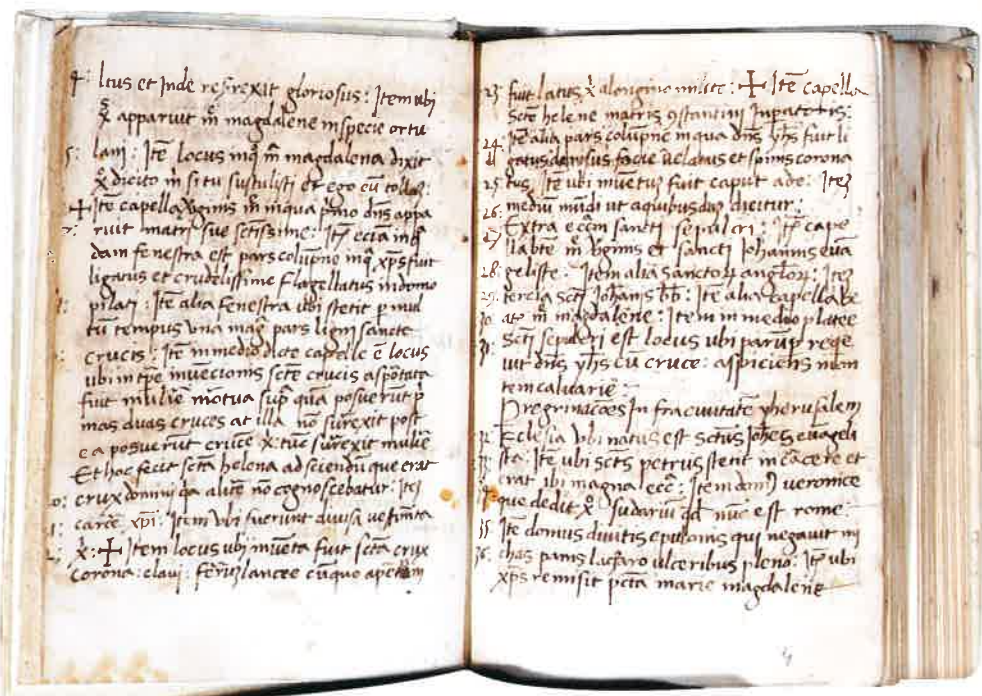 4: ltus et Inde resurexit gloriosus: Item ubi
x̄ apparuit m̄ magdalene in specie ortu
5: lani: Itē locus inq̄ m̄ magdalena dixit
x̄ dicito m̄ si tu sustulisti et ego eū tollaȝ:
✠ Itē capella v̄ginis m̄ inqua p̄mo dn̄s appa
7: ruit matri sue sctissime: Itȝ eciā inq̄
dam fenestra est pars colūpne inq̄ xp̄s fuit
ligatus et crudelissime flagellatus in domo
pilati: Itē alia fenestra ubi stetit p mul
tū tempus vna mag pars ligni sancte
crucis: Itē in medio dicte capelle ē locus
ubi in tpe inuecionis scte crucis asportata
fuit mulie mortua sup̄ quā posuerūt p̄
mas duas cruces at illa nō surexit post
ea posuerūt crucē x̄: tūc surexit muliē
Et hoc fecit sctā helena ad sciendū que erat
0: crux domini q̄a alitē nō cognoscebatur: Iteȝ
1: carcē xp̄i: Item vbi fuerunt diuisa vestimēta
2: x̄: ✠ Item locus ubi inuēta fuit sctā crux
corona: claui: ferrūȝ lancee cūquo apertum
23 fuit latus x̄ a longino milite: ✠ Itē capella
Scte helene matris 9stantini Inpatoris:
24: Itē alia pars colūpne in qua dn̄s yhs fuit li
gatus dorsus facie uelatus et spinis corona
25: tus, Itē ubi inuētuȝ fuit caput ade: Iteȝ
26: mediū mūdi ut a quibusdaȝ dicitur:
27 Extra eccm̄ sancti sepulcri: Itē cape
lla btē m̄ v̄ginis et sancti Johannis euā
28: geliste: Item alia sanctoꝝ angloꝝ: Iteȝ
29: tercia sctj Johānis bb: Itē alia capella be
30 ate m̄ magdalene: Item in medio platee
31: Sctj sepulcri est locus ubi parūp reqe
uit dn̄s yhs cū cruce: aspiciens mon
tem caluarie:
Peregrinacões In fra ciuitatē yherusalem
32 Eclesia vbi natus est sctus Johēs euāgeli
33 sta: Itē ubi scts petrus stetit in cacere et
erat ibi magna ecc̄: Item dom9 veronice
34 que dedit x̄o sudariū qd nūc est rome:
35 Itē domus diuitis epulonis qui negauit mi
36: chas panis laȝaro ulceribus pleno: Itē ubi
xp̄s remisit pctā marie magdalene
4